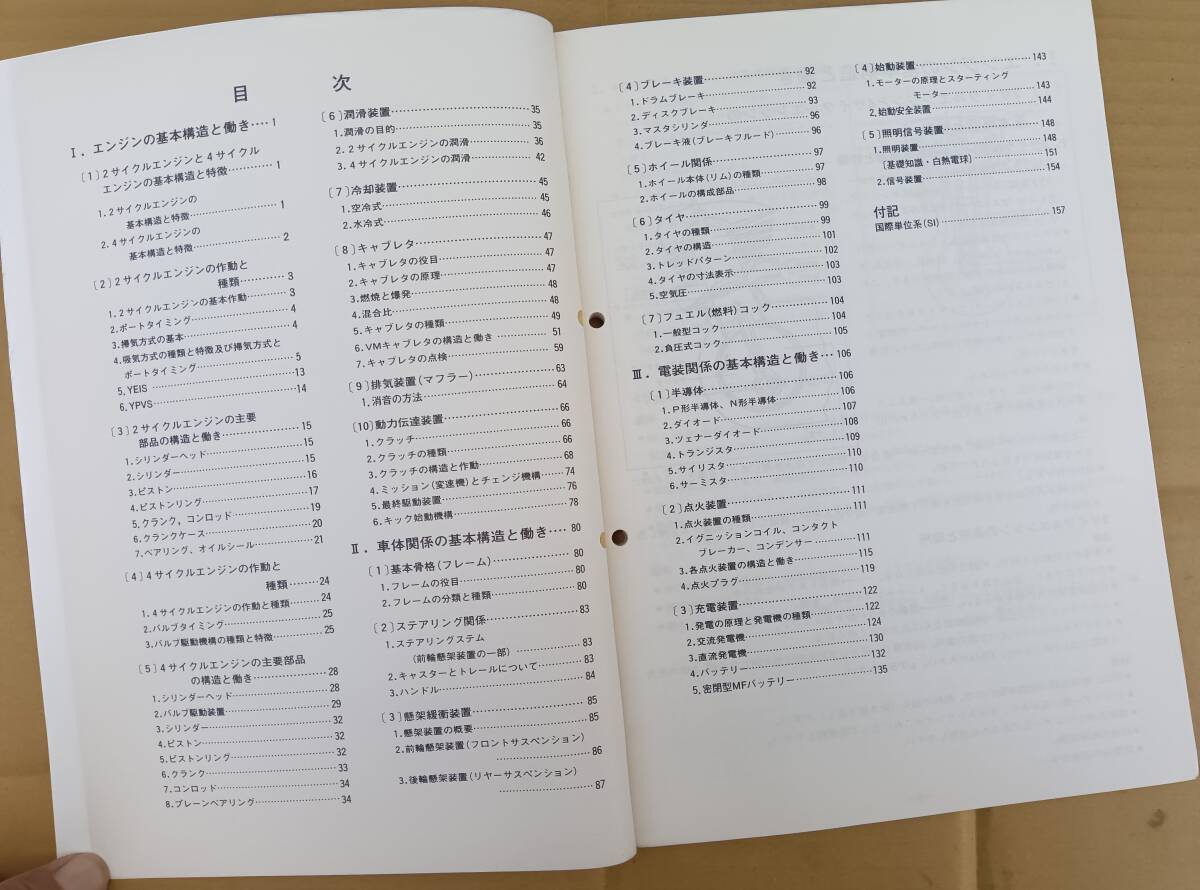 目次
I．エンジンの基本構造と働き‥‥1
〔1〕2サイクルエンジンと4サイクル
エンジンの基本構造と特徴…………1
1．2サイクルエンジンの
基本構造と特徴…………………1
2．4サイクルエンジンの
基本構造と特徴…………………2
〔2〕2サイクルエンジンの作動と
種類…………3
1．2サイクルエンジンの基本作動…………3
2．ポートタイミング…………………4
3．掃気方式の基本…………………4
4．吸気方式の種類と特徴及び掃気方式と
ポートタイミング…………………5
5．YEIS…………………13
6．YPVS…………………14
〔3〕2サイクルエンジンの主要
部品の構造と働き…………………15
1．シリンダーヘッド…………………15
2．シリンダー…………………15
3．ピストン…………………16
4．ピストンリング…………………17
5．クランク，コンロッド…………………19
6．クランクケース…………………20
7．ベアリング、オイルシール…………………21
〔4〕4サイクルエンジンの作動と
種類………24
1．4サイクルエンジンの作動と種類………24
2．バルブタイミング…………………25
3．バルブ駆動機構の種類と特徴…………25
〔5〕4サイクルエンジンの主要部品
の構造と働き…………………28
1．シリンダーヘッド…………………28
2．バルブ駆動装置…………………29
3．シリンダー…………………32
4．ピストン…………………32
5．ピストンリング…………………32
6．クランク…………………33
7．コンロッド…………………34
8．プレーンベアリング…………………34
〔6〕潤滑装置…………………35
1．潤滑の目的…………………35
2．2サイクルエンジンの潤滑…………36
3．4サイクルエンジンの潤滑…………42
〔7〕冷却装置…………………45
1．空冷式…………………45
2．水冷式…………………46
〔8〕キャブレタ…………………47
1．キャブレタの役目…………………47
2．キャブレタの原理…………………47
3．燃焼と爆発…………………48
4．混合比…………………48
5．キャブレタの種類…………………49
6．VMキャブレタの構造と働き…………51
7．キャブレタの点検…………………59
〔9〕排気装置(マフラー)…………………63
1．消音の方法…………………64
〔10〕動力伝達装置…………………66
1．クラッチ…………………66
2．クラッチの種類…………………66
3．クラッチの構造と作動…………………68
4．ミッション(変速機)とチェンジ機構………74
5．最終駆動装置…………………76
6．キック始動機構…………………78
II．車体関係の基本構造と働き‥‥80
〔1〕基本骨格(フレーム)…………………80
1．フレームの役目…………………80
2．フレームの分類と種類…………………80
〔2〕ステアリング関係…………………83
1．ステアリングステム
(前輪懸架装置の一部)…………………83
2．キャスターとトレールについて…………83
3．ハンドル…………………84
〔3〕懸架緩衝装置…………………85
1．懸架装置の概要…………………85
2．前輪懸架装置(フロントサスペンション)
…………………86
3．後輪懸架装置(リヤーサスペンション)
…………………87
〔4〕ブレーキ装置…………………92
1．ドラムブレーキ…………………92
2．ディスクブレーキ…………………93
3．マスタシリンダ…………………96
4．ブレーキ液(ブレーキフルード)…………96
〔5〕ホイール関係…………………97
1．ホイール本体(リム)の種類…………97
2．ホイールの構成部品…………………98
〔6〕タイヤ…………………99
1．タイヤの種類…………………99
2．タイヤの構造…………………101
3．トレッドパターン…………………102
4．タイヤの寸法表示…………………103
5．空気圧…………………103
〔7〕フュエル(燃料)コック…………104
1．一般型コック…………………104
2．負圧式コック…………………105
III．電装関係の基本構造と働き…106
〔1〕半導体…………………106
1．P形半導体、N形半導体…………106
2．ダイオード…………………107
3．ツェナーダイオード…………………108
4．トランジスタ…………………109
5．サイリスタ…………………110
6．サーミスタ…………………110
〔2〕点火装置…………………111
1．点火装置の種類…………………111
2．イグニッションコイル、コンタクト
ブレーカー、コンデンサー…………111
3．各点火装置の構造と働き…………115
4．点火プラグ…………………119
〔3〕充電装置…………………122
1．発電の原理と発電機の種類…………122
2．交流発電機…………………124
3．直流発電機…………………130
4．バッテリー…………………132
5．密閉型MFバッテリー…………………135
〔4〕始動装置…………………143
1．モーターの原理とスターティング
モーター…………………143
2．始動安全装置…………………144
〔5〕照明信号装置…………………148
1．照明装置…………………148
〔基礎知識・白熱電球〕…………………151
2．信号装置…………………154
付記
国際単位系(SI)…………………157